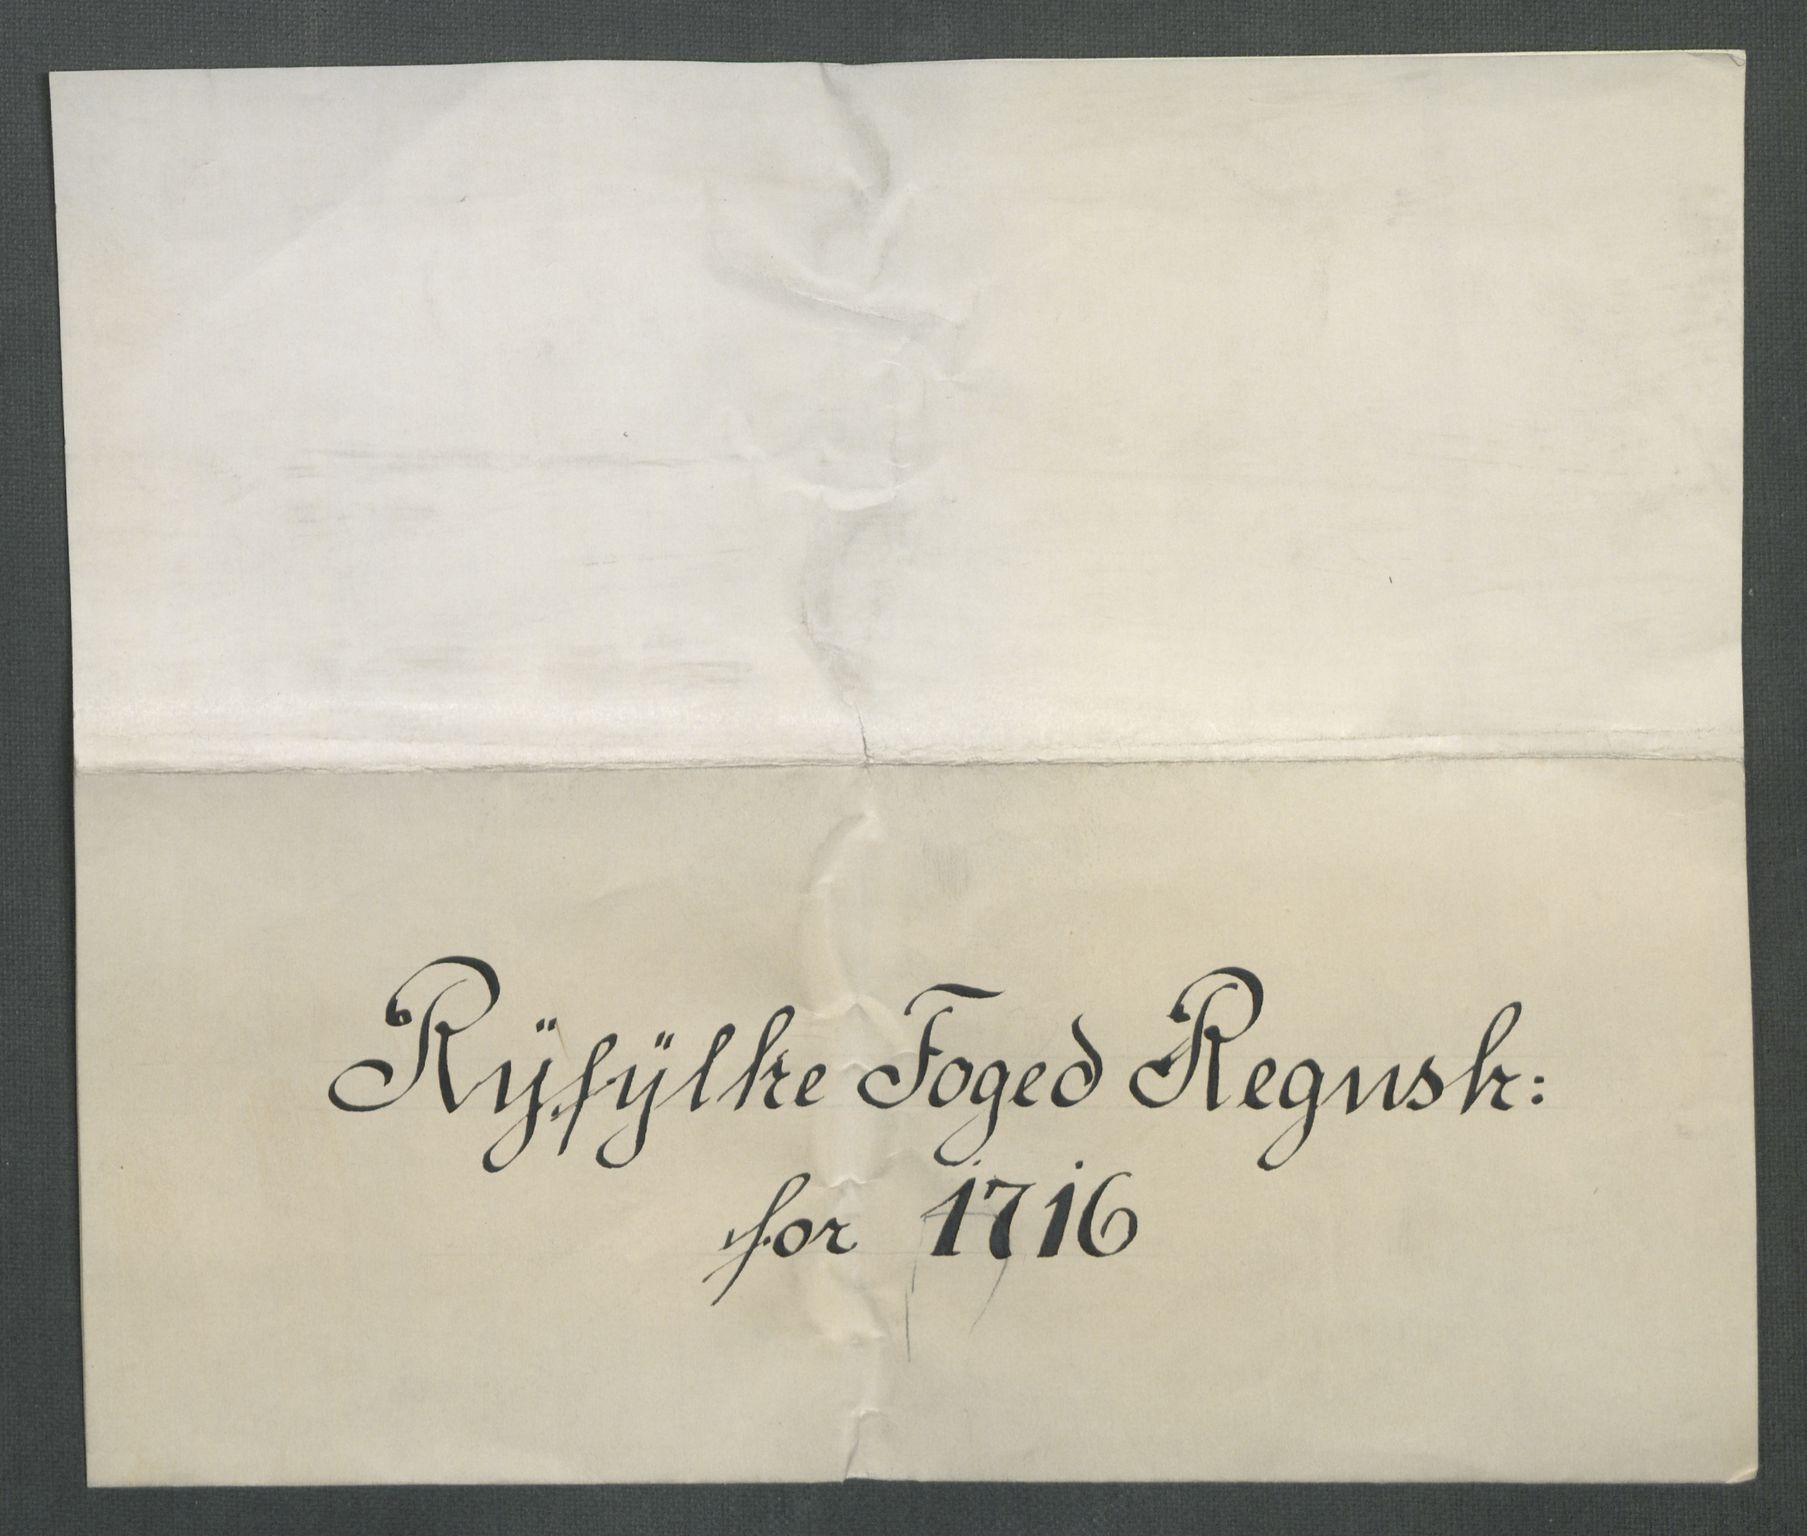 Rÿfÿlke Foged Regnsk:
for 1716